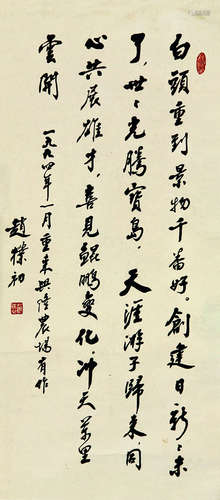 白頭重到景物千番好。創建日新〻未
了，世〻光騰寶島，天涯游子歸来同
心共展雄才，喜見鯤鵬變化，冲天萬里
雲開
一九九四年一月重来興隆農場有作
趙樸初